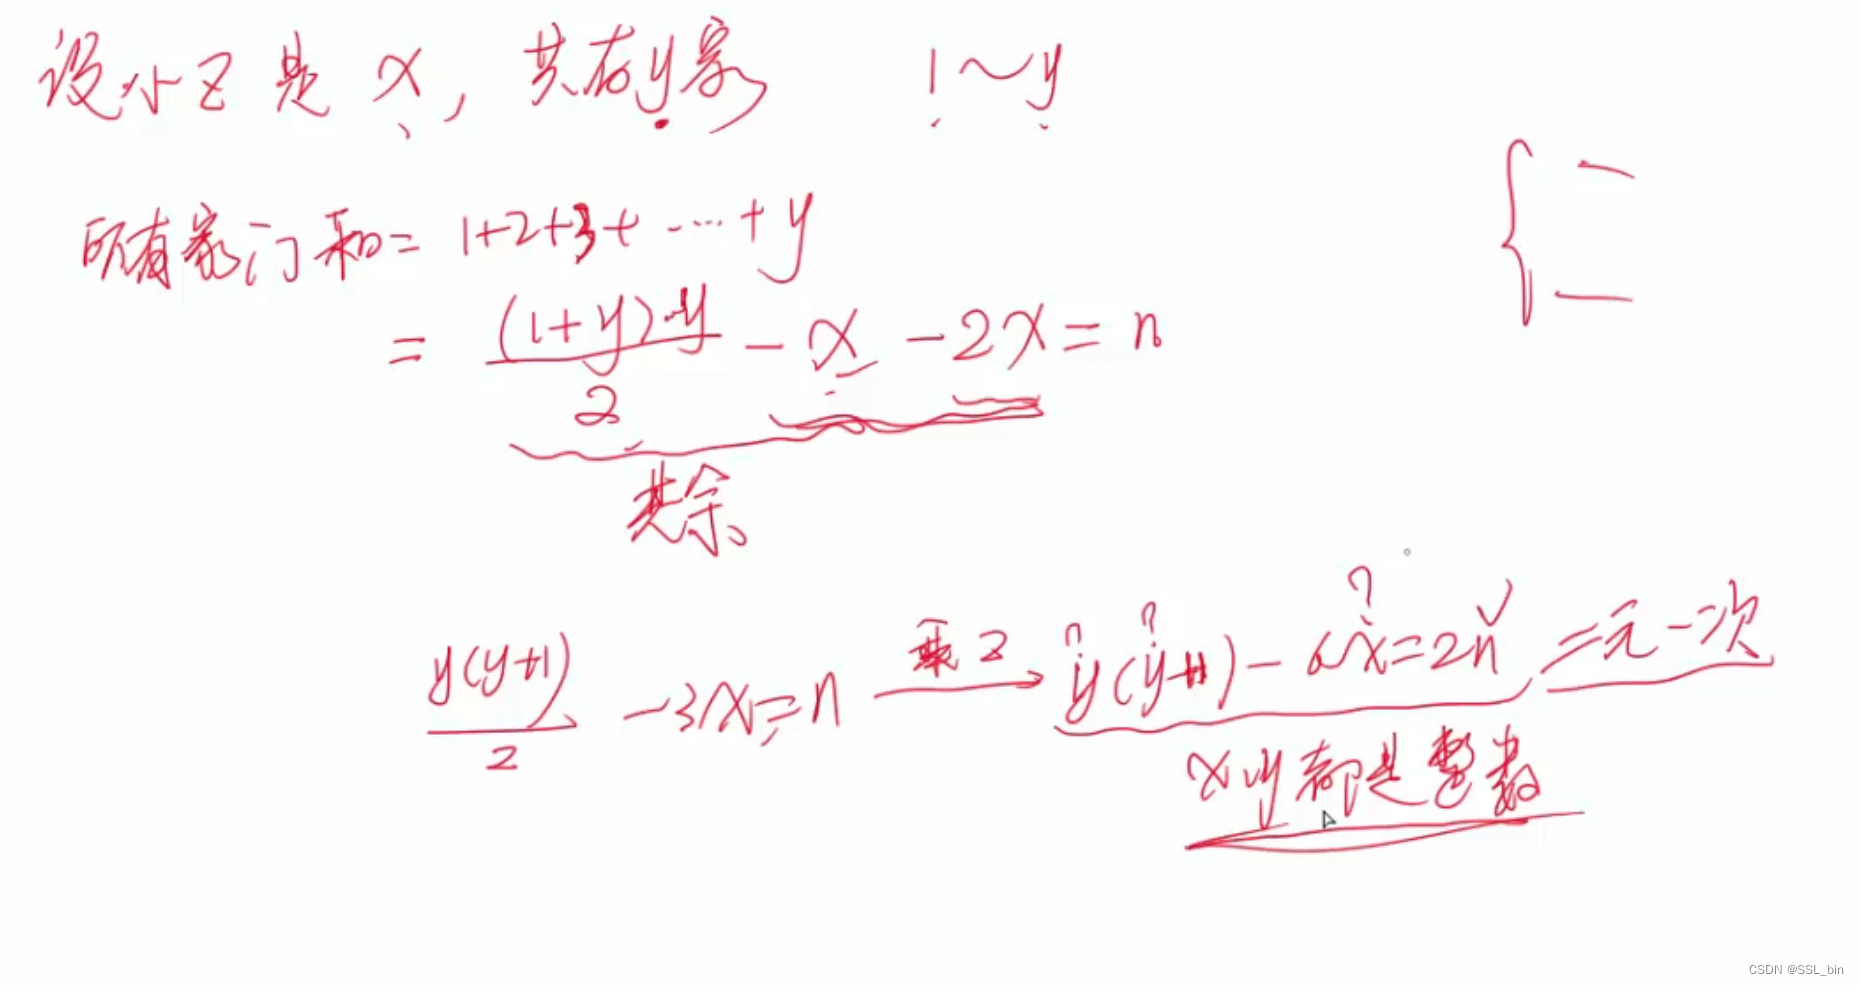 设小Z是x，共有y家 1～y
所有家门和= 1+2+3+……+y
= (1+y)·y/2 - x - 2x = n
其余
y(y+1)/2 - 3x = n 乘2 → y(y+1) - 6x = 2n ✓ 二元一次
? ? ?
x y 都是整数
CSDN @SSL_bin